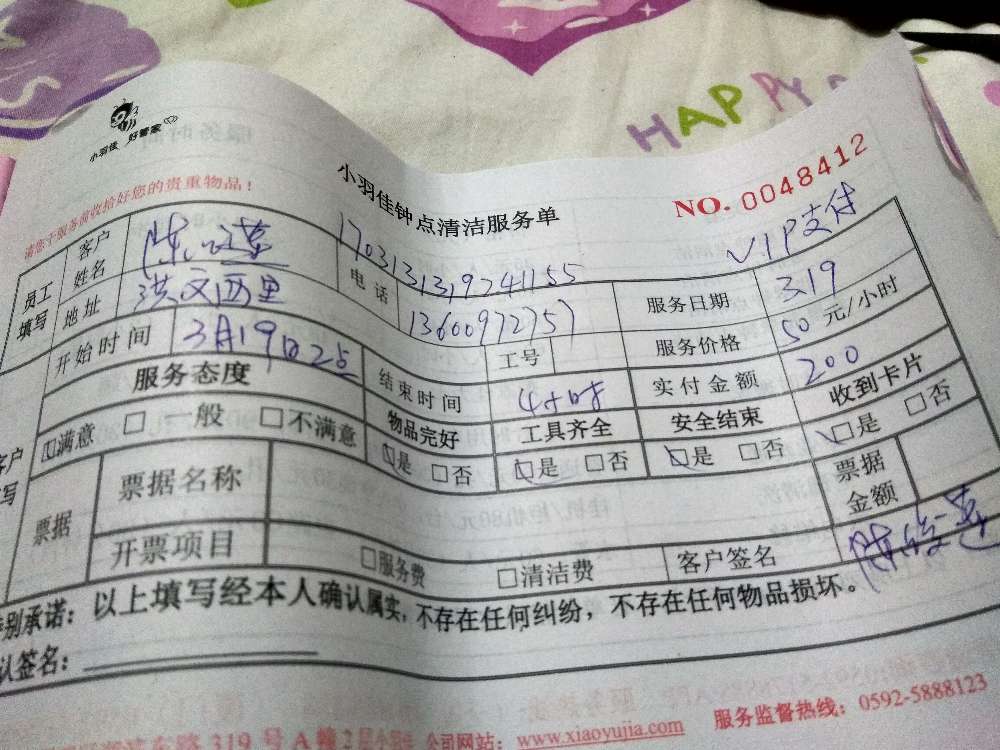 HAPPY
小羽佳 好管家
请您于服务前收拾好您的贵重物品！
小羽佳钟点清洁服务单
NO. 0048412
VIP支付
员工填写
客户姓名
电话
17031313192411 55
13600972757
服务日期 3.19
地址 洪文西里
工号
服务价格 50 元/小时
开始时间 3月19日
结束时间 4小时
实付金额 200
服务态度
物品完好 工具齐全 安全结束 收到卡片
满意 □ 一般 □ 不满意
是 □否 是 □否 是 □否 □是 □否
票据
票据名称
票据金额
开票项目 □服务费 □清洁费 客户签名
承诺：以上填写经本人确认属实，不存在任何纠纷，不存在任何物品损坏。
签名：
东路 319 号 A 幢 2 公司网站：www.xiaoyujia.com 服务监督热线：0592-5888123